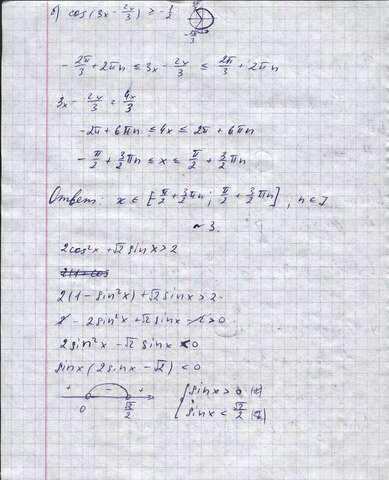 б) cos(3x - 2x/3) ≥ -1/2
-2π/3 + 2πn ≤ 3x - 2x/3 ≤ 2π/3 + 2πn
3x - 2x/3 = 4x/3
-2π + 6πn ≤ 4x ≤ 2π + 6πn
-π/2 + 3/2 πn ≤ x ≤ π/2 + 3/2 πn
Ответ: x ∈ [-π/2 + 3/2 πn; π/2 + 3/2 πn], n ∈ Z
~ 3.
2cos²x + √2 sin x > 2
2(1 - sin²x) + √2 sin x > 2
2 - 2sin²x + √2 sin x - 2 > 0
2sin²x - √2 sin x < 0
sin x (2 sin x - √2) < 0
+ - +
0 √2/2
{ sin x > 0 (1)
sin x < √2/2 (2)